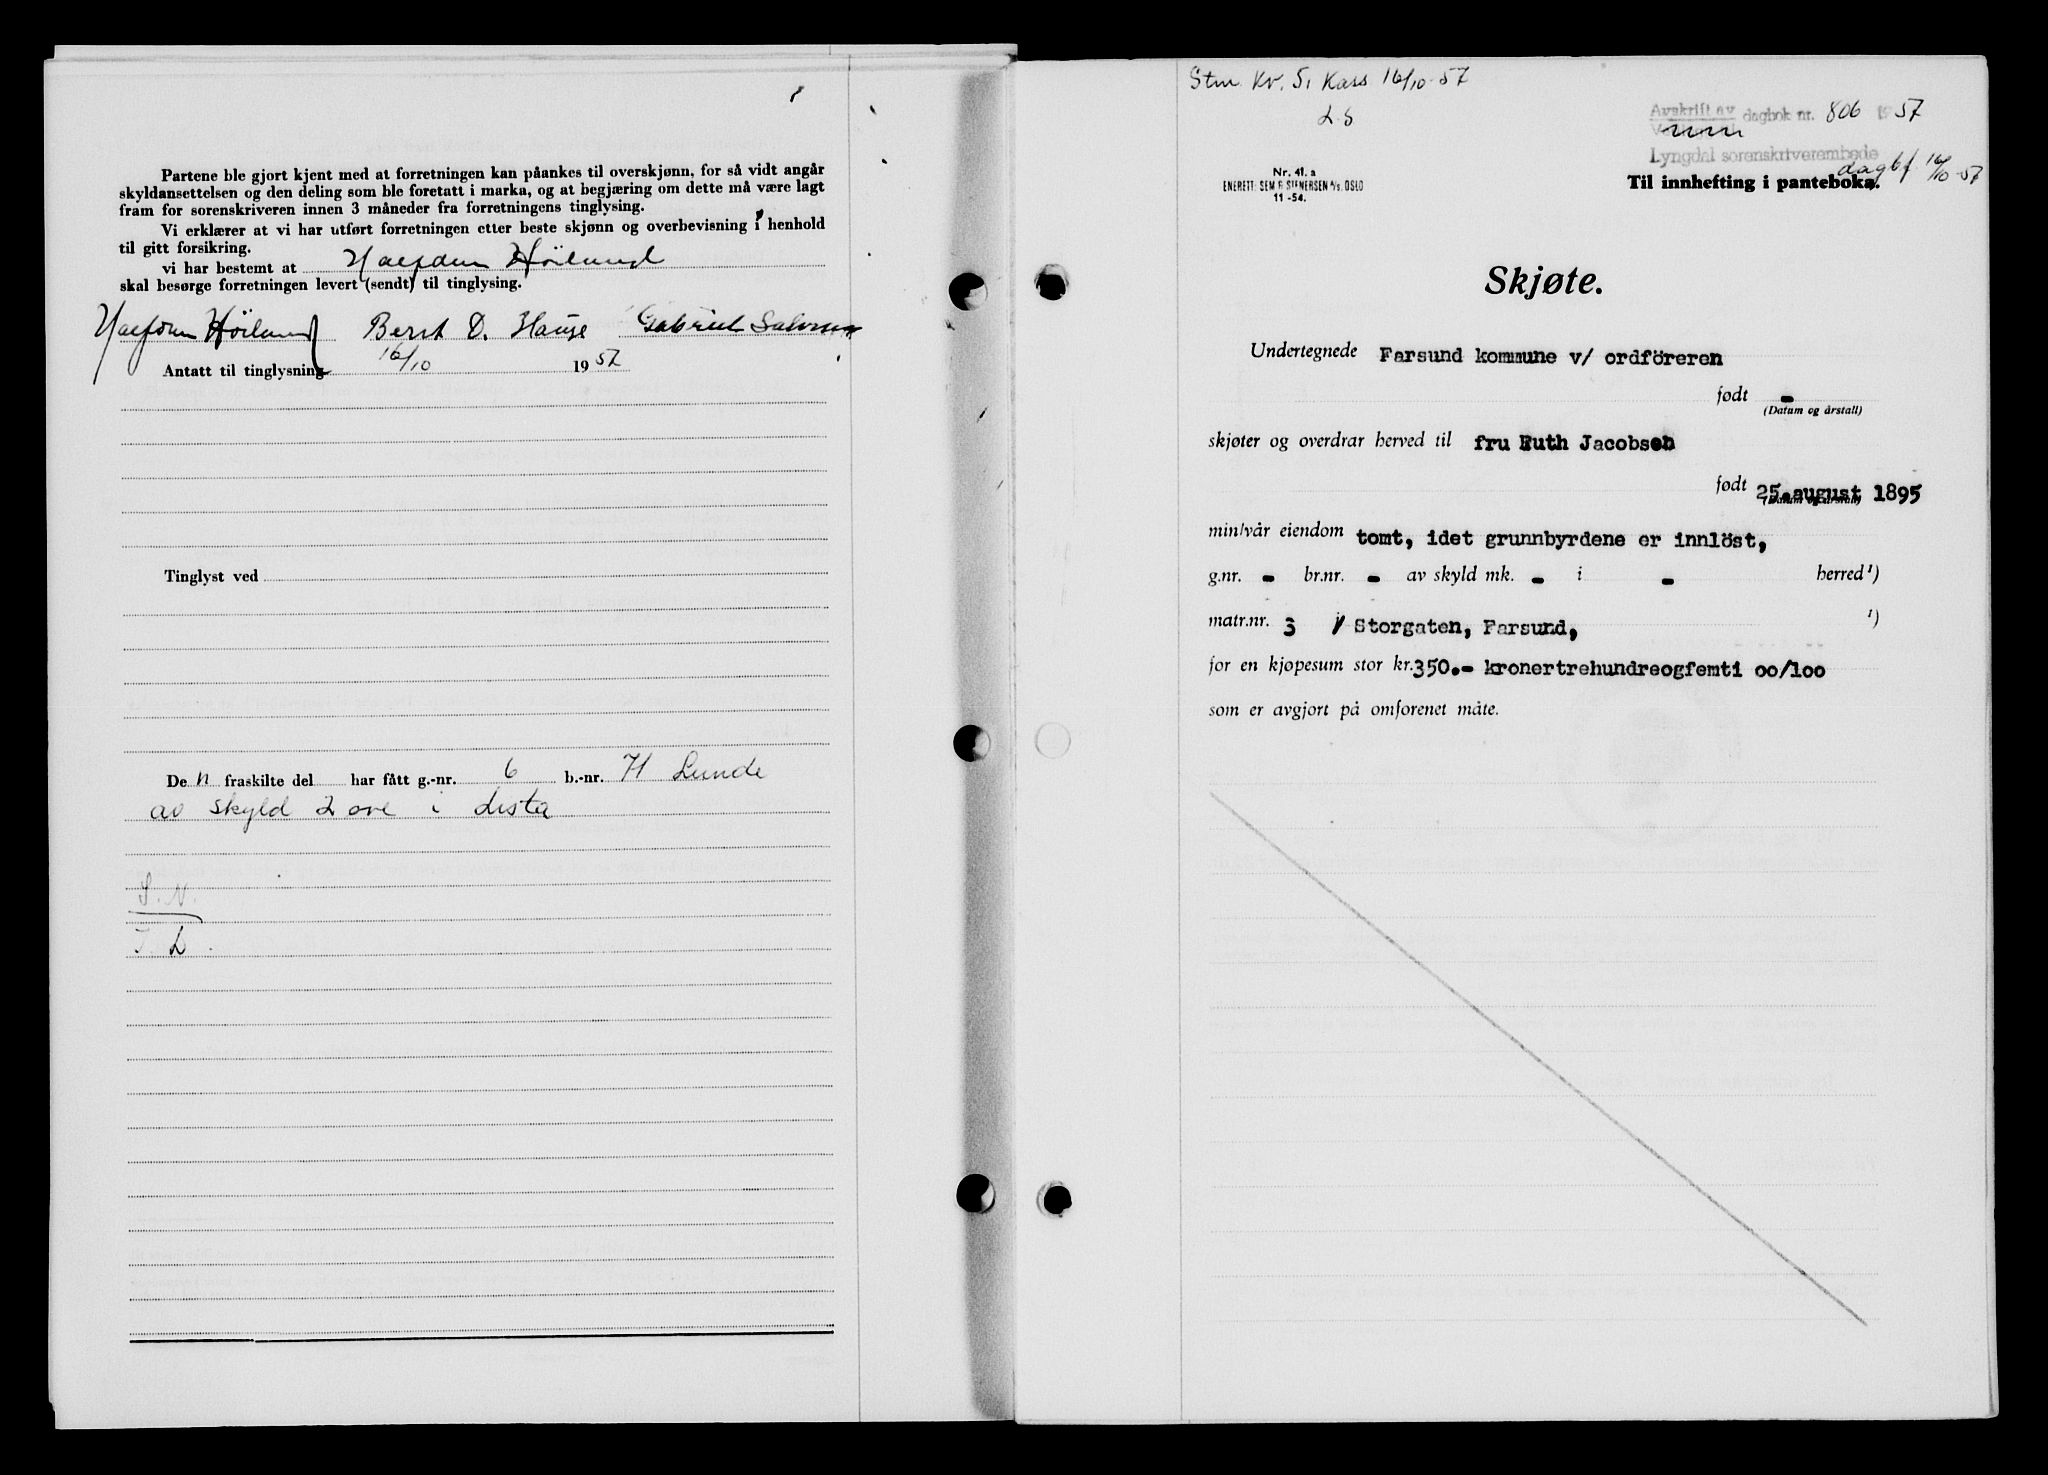 Partene ble gjort kjent med at forretningen kan påankes til overskjønn, for så vidt angår
skyldansettelsen og den deling som ble foretatt i marka, og at begjæring om dette må være lagt
fram for sorenskriveren innen 3 måneder fra forretningens tinglysing.
Vi erklærer at vi har utført forretningen etter beste skjønn og overbevisning i henhold
til gitt forsikring.
vi har bestemt at Halfdan Höilund
skal besørge forretningen levert (sendt) til tinglysing.
Halfdan Höilund Berst D. Hauge Gabriel
Antatt til tinglysning 16/10 1957
Tinglyst ved
De n fraskilte del har fått g.-nr. 6 b.-nr. 71 Lunde
av skyld 2 øre i Lista
S. N.
L
Stm Kv. 5, Kass 16/10-57
L S
Avskrift av dagbok nr. 806 1957
Lyngdal sorenskriverembede
dagbf 16/10-57
Nr. 41. a
ENERETT: SEM & STENERSEN A/S. OSLO
11-54.
Til innhefting i panteboka.
Skjøte.
Undertegnede Farsund kommune v/ ordföreren
født -
(Datum og årstall)
skjøter og overdrar herved til fru Ruth Jacobsen
født 25.august 1895
(Datum og årstall)
min/vår eiendom tomt, idet grunnbyrdene er innlöst,
g.nr. - br.nr. - av skyld mk. - i - herred ¹)
matr.nr. 3 i Storgaten, Farsund, ¹)
for en kjøpesum stor kr.350.- kronertrehundreogfemti oo/loo
som er avgjort på omforenet måte.